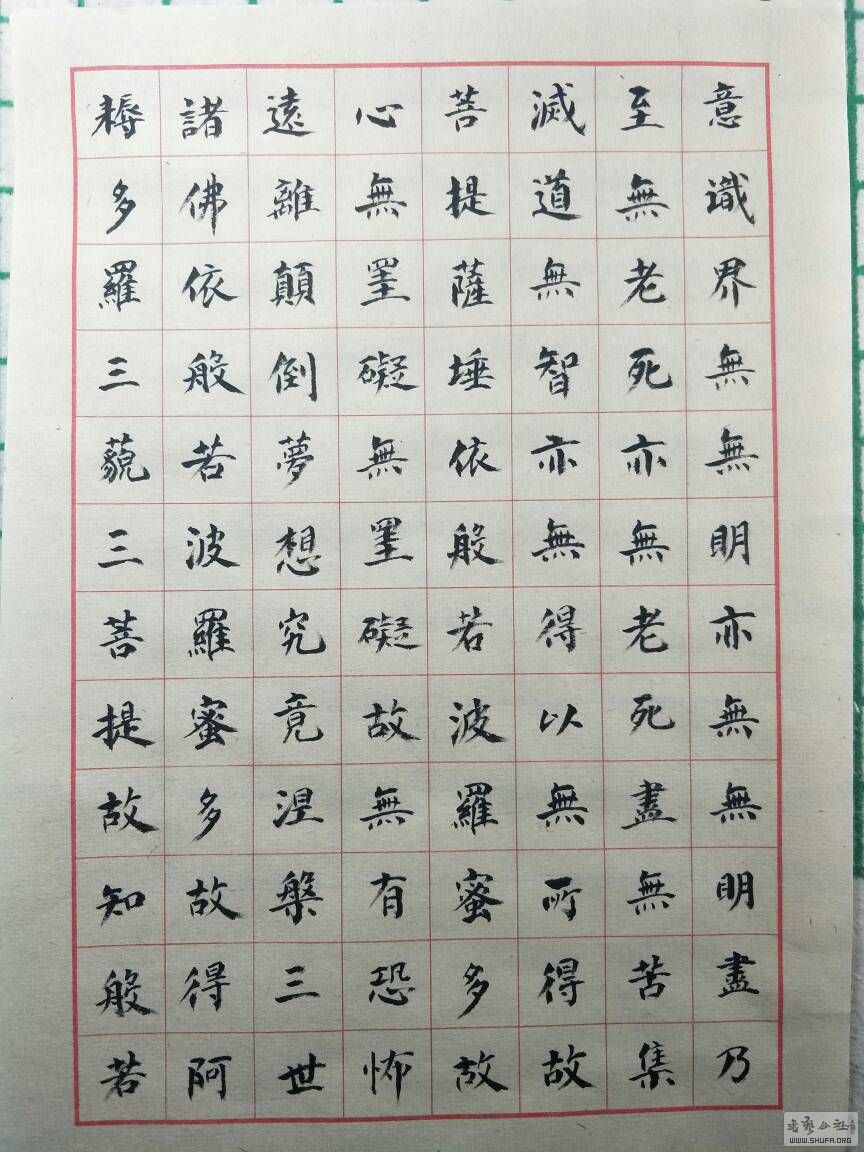 意識界無無明亦無無明盡乃
至無老死亦無老死盡無苦集
滅道無智亦無得以無所得故
菩提薩埵依般若波羅蜜多故
心無罣礙無罣礙故無有恐怖
遠離顛倒夢想究竟涅槃三世
諸佛依般若波羅蜜多故得阿
耨多羅三藐三菩提故知般若
書藝公社
WWW.SHUFA.ORG